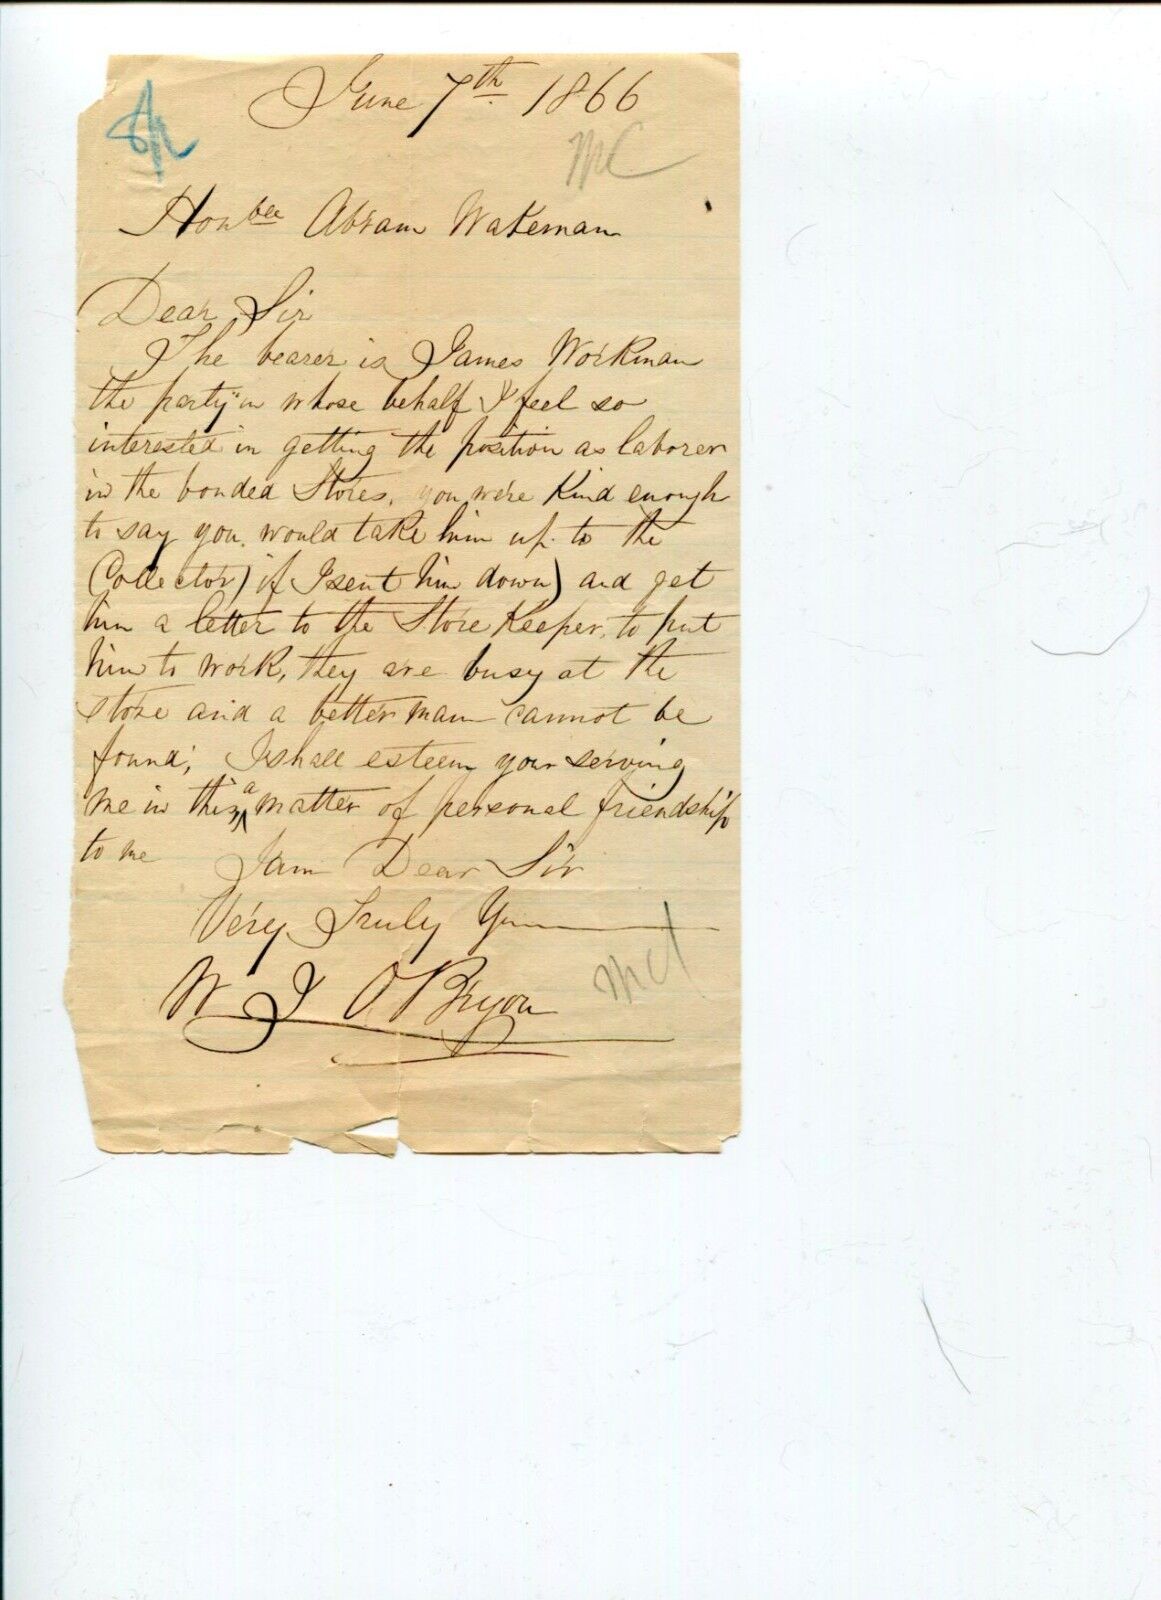 June 7th 1866
MC
Honble Abram Wakeman
Dear Sir
The bearer is James Workman
the party in whose behalf I feel so
interested in getting the position as laborer
in the bonded Stores, you were kind enough
to say you would take him up to the
Collector) if I sent him down) and get
him a letter to the Store Keeper, to put
him to work, they are busy at the
store and a better man cannot be
found; I shall esteem your serving
me in this a matter of personal friendship
to me I am Dear Sir
Very Truly Yours
W J O'Bryon